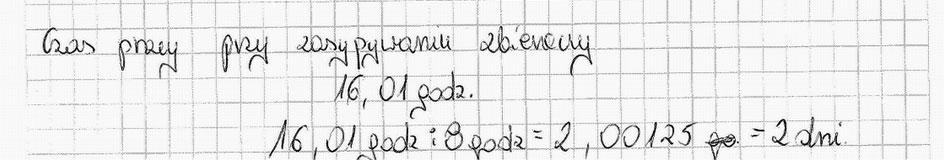 Czas pracy przy zasypywaniu zbieraczy
16,01 godz.
16,01 godz : 8 godz = 2,00125 = 2 dni.